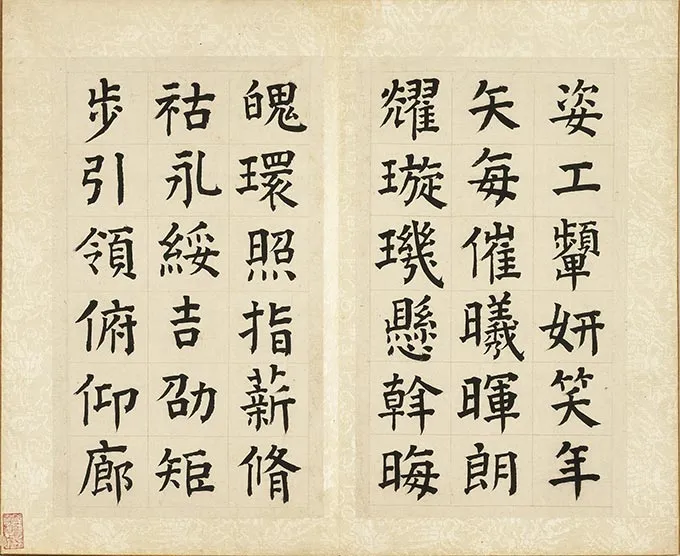 姿工顰妍笑年
矢每催曦暉朗
耀璇璣懸斡晦
魄環照指薪脩
祜永綏吉劭矩
步引領俯仰廊